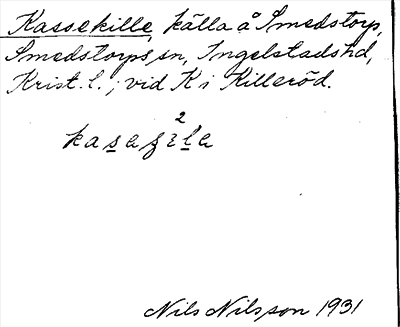 Kassekille, källa å Smedstorp,
Smedstorps sn, Ingelstads hd,
Krist. l.; vid K i Killeröd.
2
Nils Nilsson 1931